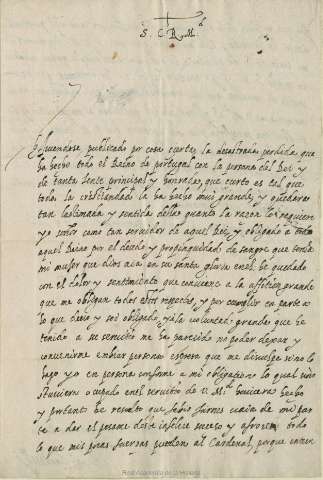 S. C. R. M.d
Haviendose publicado por cosa cierta, la desastrada perdida que
ha hecho todo el Reino de portugal con la persona del Rei y
de tanta gente principal y honrrada, que cierto es tal que
toda la cristiandad la ha hecho mui grande, y quedara
tan lastimada y sentida della quanto la razon lo requiere
yo señor como tan servidor de aquel Rei, y obligado a todo
aquel Reino por el deudo y propinquidad de sangre que tenia
mi muger que dios aia en su santa gloria en el he quedado
con el dolor y sentimiento que conviene a la aflicion grande
que me obligan todos estos respectos, y por cumplir en parte a
lo que devo y soi obligado, y a la voluntad grande que he
tenido a su servicio me ha parecido no poder dexar y
convenirme embiar persona espero que me disculpe si no lo
hago yo en persona conforme a mi obligacion lo qual si no
estuviera ocupado en el servicio de V. M.d huviera hecho
y portanto he resuelto que
a dar el pesame deste infelice suceso y a ofrecer todo
lo que mis pocas fuerças pueden al Cardenal, porque
Real Academia de la Historia